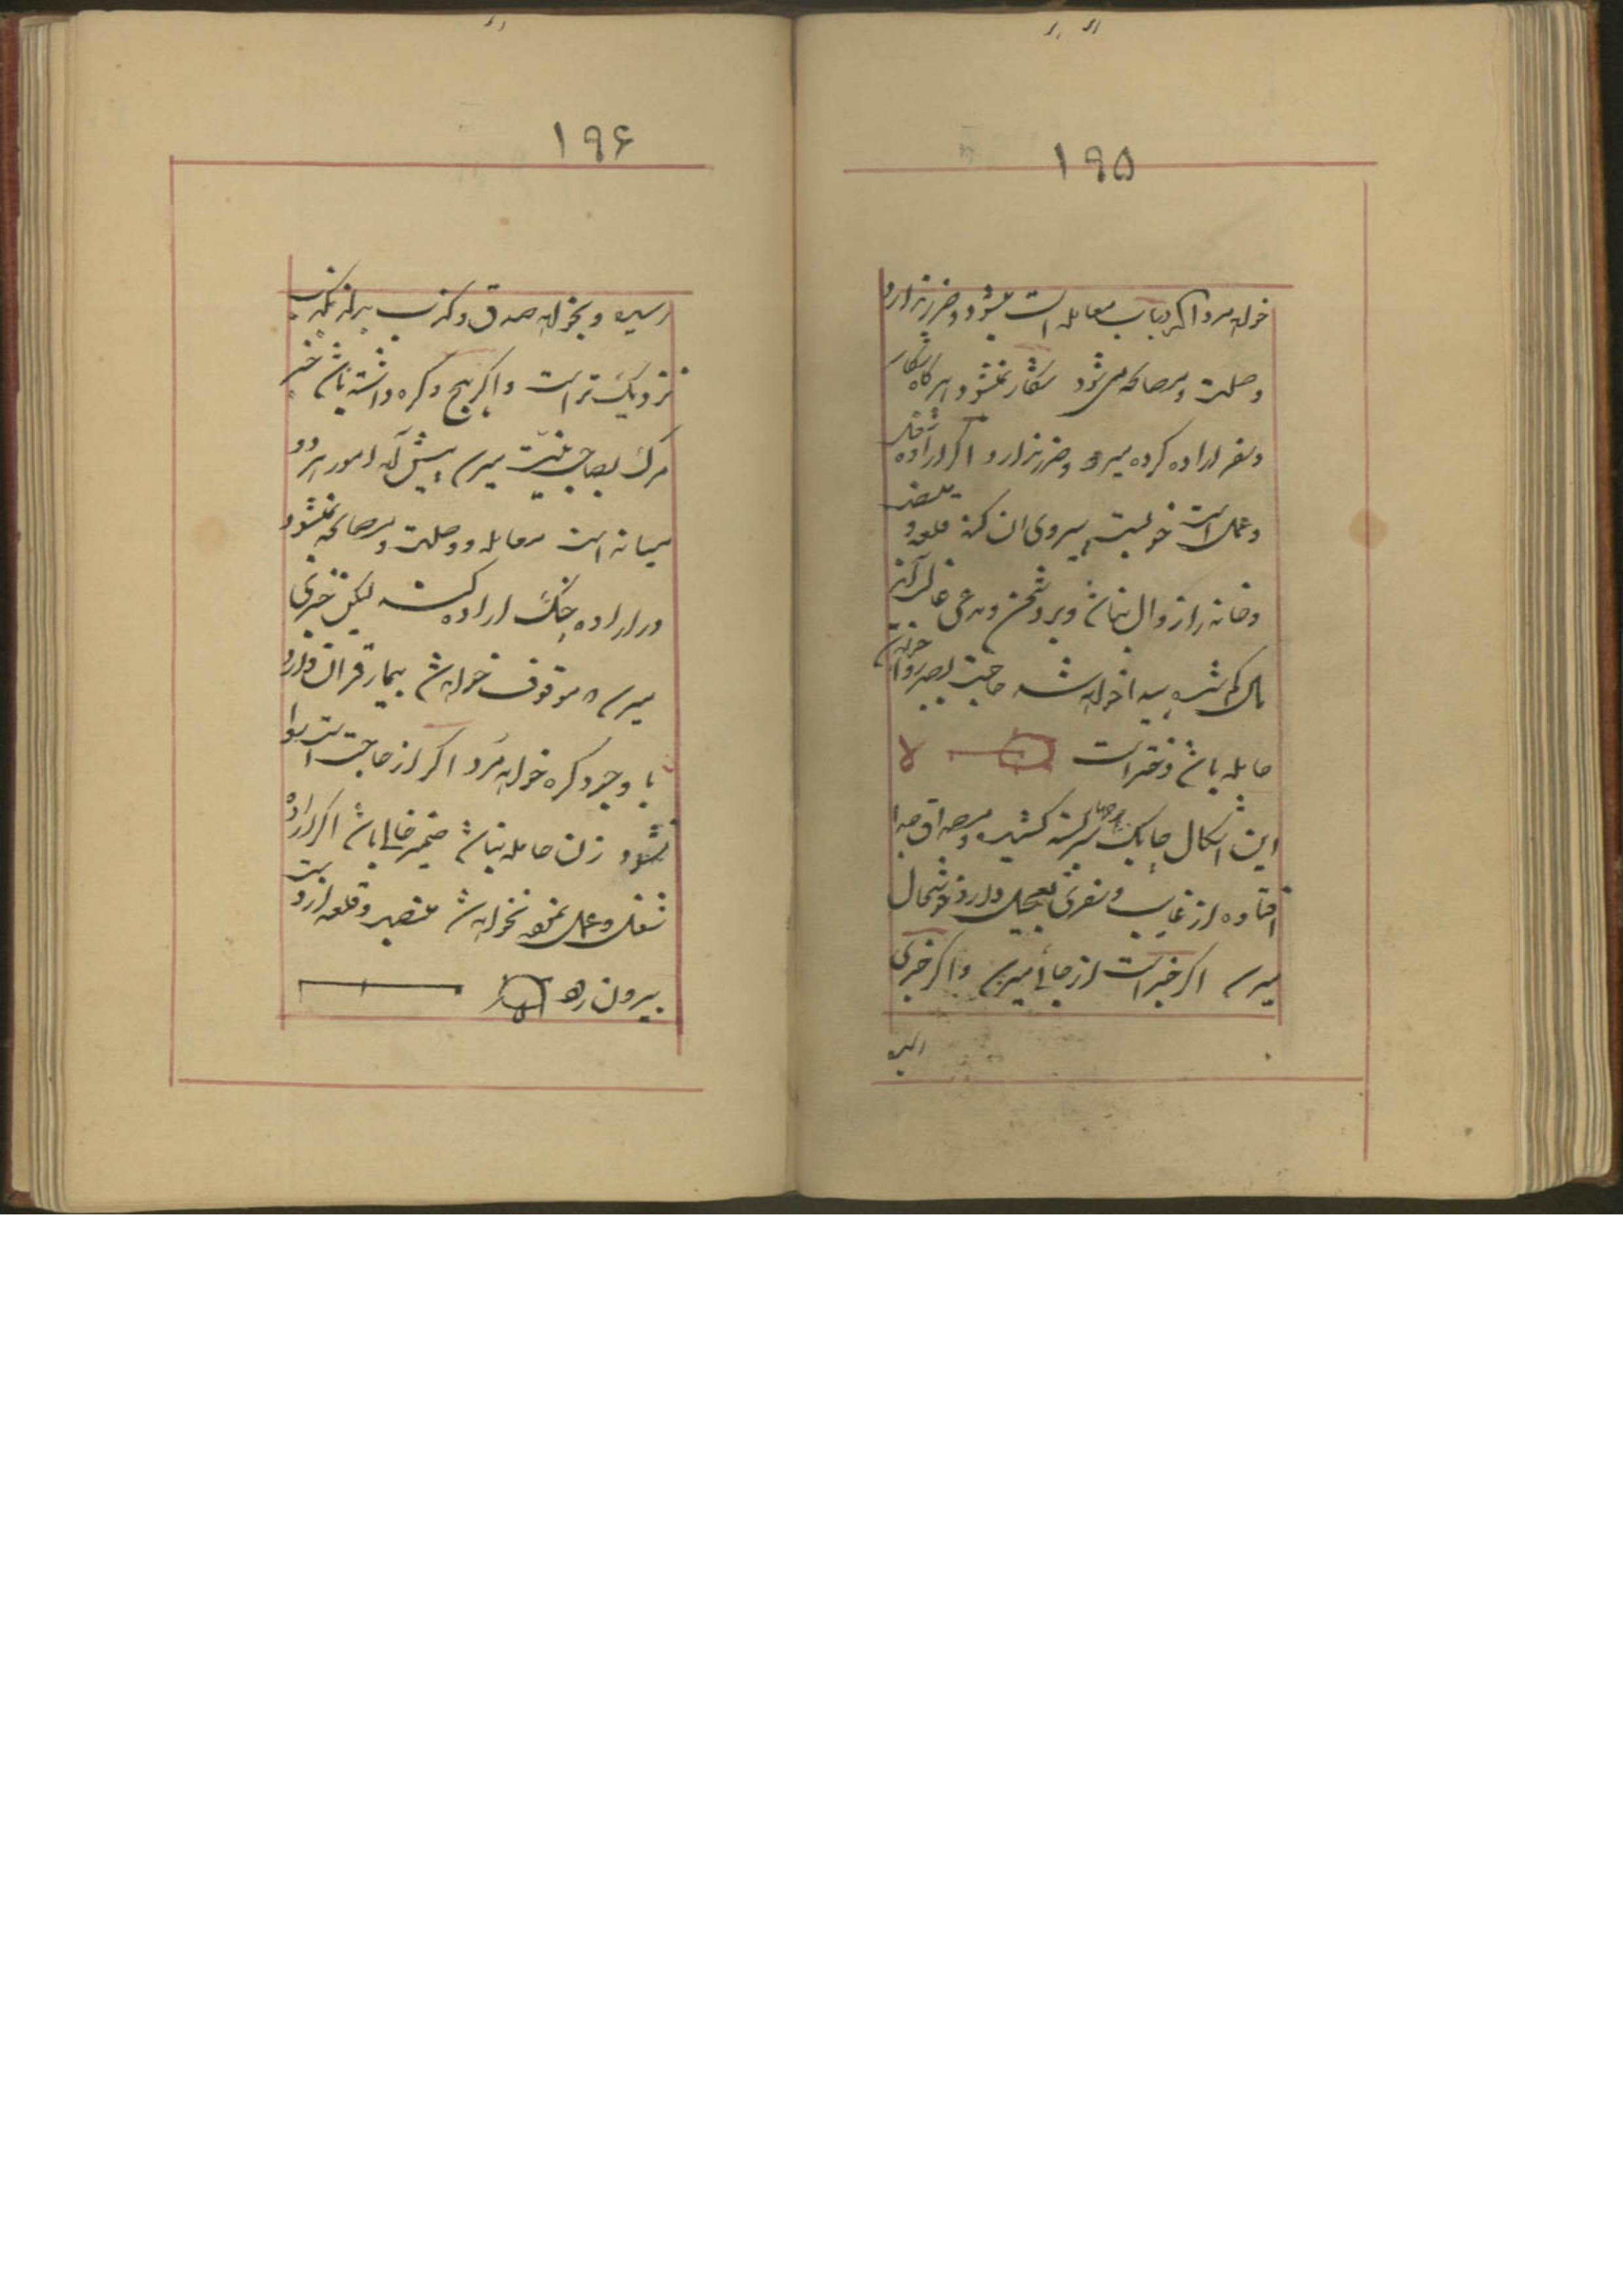 ۱۹۵
خواهد مرد اگر در باب معامله است میشود و ضرر ندارد
وصلت و مصالحه می شود شکار نمیشود و هر گاه
و سفر اراده کرده میرود و ضرر ندارد اگر اراده شغل
و عمل است خوبست پیروی ان کن قلعه و
و خانه را زوال نباشد و بر دشمن و مدعی غالب آید
مال گم شده پیدا خواهد شد حاجت
حامله باشد دختر است
این اشکال
افتاده از غایب و سفری دارد خوشحال
میرسد اگر خبر است از جائی میرسد و اگر خبری
رسیده
۱۹۶
رسیده و بخواهد صدق و کذب بداند بکذب
نزدیک تر است و اگر هیچ گره داشته باشد خبر
مرگ بصاحب نیت میرسد پیش آمد امور هر دو
میانه است معامله و وصلت و مصالحه نمیشود
در اراده جنگ اراده لیکن خبری
میرسد موقوف خواهد شد بیمار قران دارد
با وجود گره خواهد مرد اگر از حاجت است روا
نشود زن حامله نباشد ضمیر خالی باشد اگر اراده
شغل و عمل نمود نخواهد شد منصب و قلعه از دست
بیرون رود